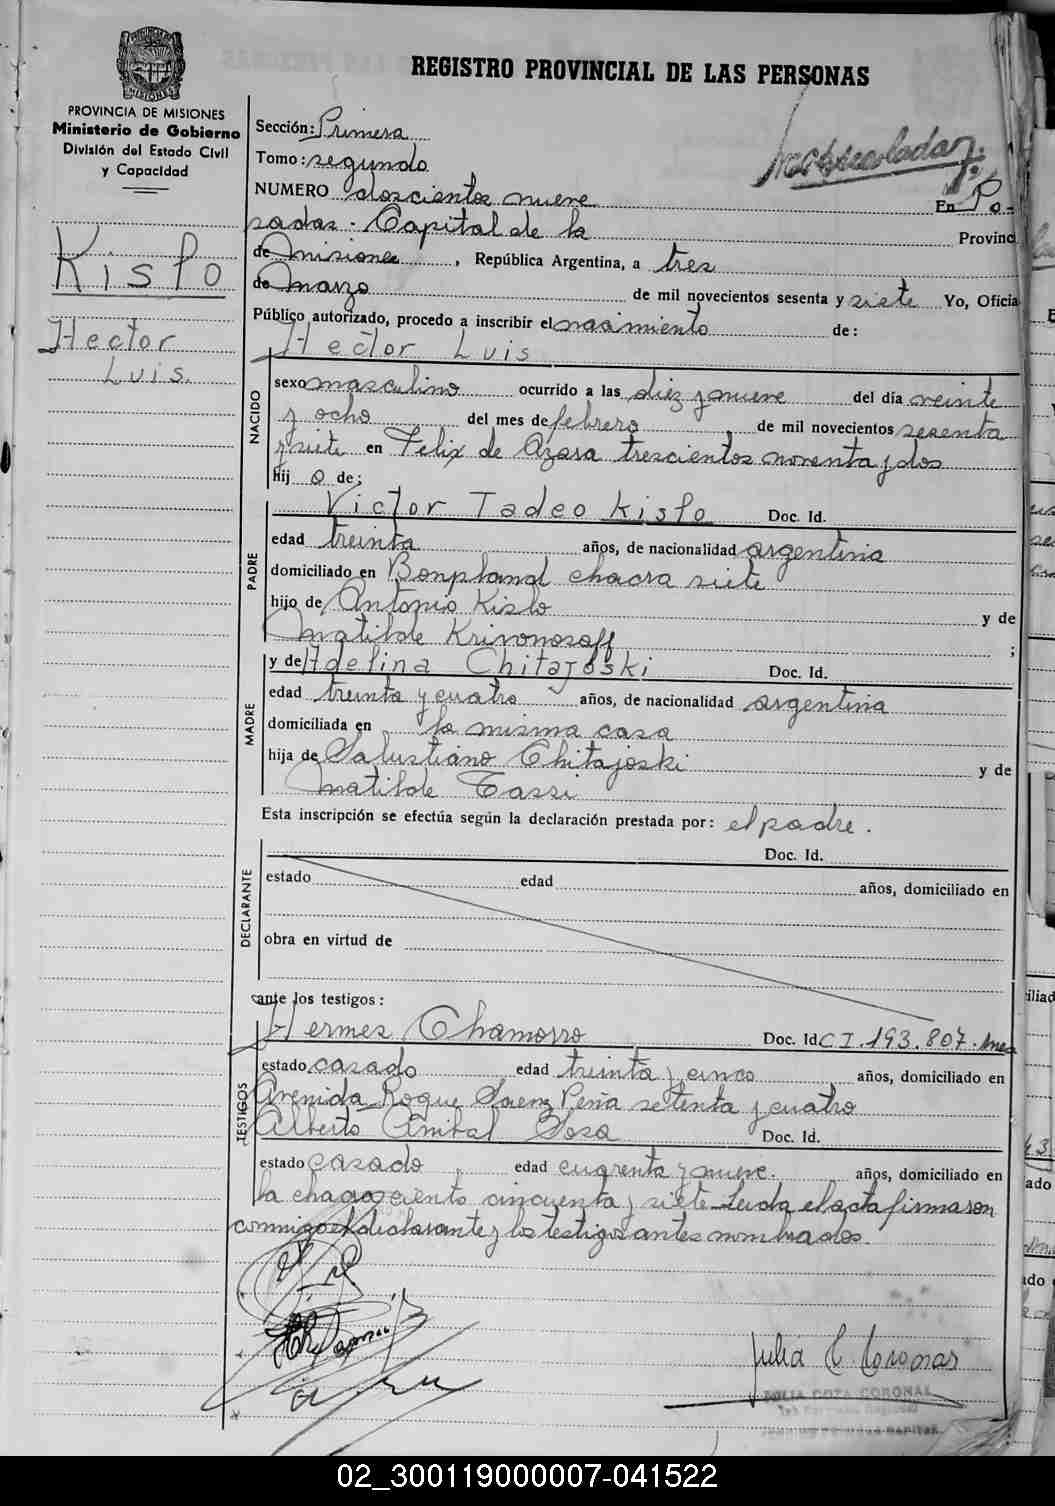 PROVINCIA DE MISIONES
Ministerio de Gobierno
División del Estado Civil
y Capacidad
Kislo
Hector
Luis.
REGISTRO PROVINCIAL DE LAS PERSONAS
Sección: Primera
Tomo: segundo
NUMERO doscientos nueve En Po-
sadas - Capital de la Provinc
de Misiones, República Argentina, a tres
de Marzo de mil novecientos sesenta y siete Yo, Oficia
Público autorizado, procedo a inscribir el nacimiento de:
Hector Luis
NACIDO
sexo masculino ocurrido a las diez y nueve del día veinte
y ocho del mes de febrero, de mil novecientos sesenta
y siete en Felix de Azara trescientos noventa y dos
hij o de:
PADRE
Victor Tadeo Kislo Doc. Id.
edad treinta años, de nacionalidad argentina
domiciliado en Bonpland chacra siete
hijo de Antonio Kislo y de
Matilde Krivonosaff ;
MADRE
y de Adelina Chitajoski Doc. Id.
edad treinta y cuatro años, de nacionalidad argentina
domiciliada en la misma casa
hija de Salustiano Chitajoski y de
Matilde Tassi
Esta inscripción se efectúa según la declaración prestada por: el padre.
DECLARANTE
Doc. Id.
estado edad años, domiciliado en
obra en virtud de
ante los testigos:
TESTIGOS
Hermes Chamorro Doc. Id. C I. 193.807. Mnes
estado casado edad treinta y cinco años, domiciliado en
Avenida Roque Saenz Peña setenta y cuatro
Alberto Anibal Sosa Doc. Id.
estado casado, edad cuarenta y nueve. años, domiciliado en
la chacra ciento cincuenta y siete. Leida el acta firmaron
conmigo el declarante y los testigos antes nombrados.
Julia C. Coronas
02_300119000007-041522